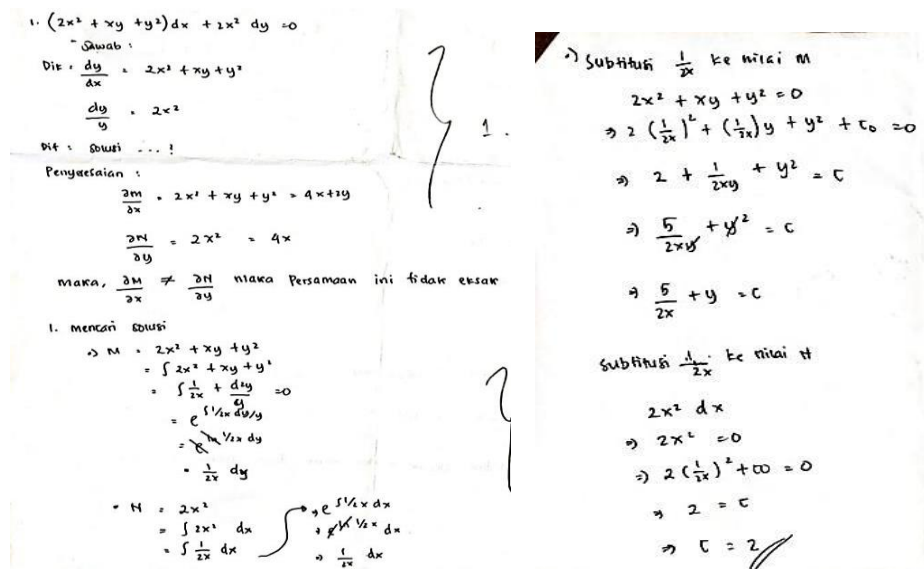 1. (2x² + xy + y²) dx + 2x² dy = 0
- Jawab :
Dik : dy/dx = 2x² + xy + y²
dy/y = 2x²
Dit : Solusi ... !
Penyelesaian :
∂m/∂x = 2x² + xy + y² = 4x + 2y
∂N/∂y = 2x² = 4x
maka, ∂M/∂x ≠ ∂N/∂y maka Persamaan ini tidak eksak
1.
1. mencari solusi
•) M = 2x² + xy + y²
= ∫ 2x² + xy + y²
= ∫ 1/2x + dxy/y = 0
= e^∫1/2x dy/y
= e^ln 1/2x dy
= 1/2x dy
• N = 2x²
= ∫ 2x² dx
= ∫ 1/2x dx
→ e^∫1/2x dx
→ e^ln 1/2x dx
⇒ 1/2x dx
•) Subtitusi 1/2x ke nilai M
2x² + xy + y² = 0
⇒ 2 (1/2x)² + (1/2x) y + y² + C₀ = 0
⇒ 2 + 1/2xy + y² = C
⇒ 5/2xy + y² = C
⇒ 5/2x + y = C
Subtitusi 1/2x ke nilai N
2x² dx
⇒ 2x² = 0
⇒ 2 (1/2x)² + C0 = 0
⇒ 2 = C
⇒ C = 2